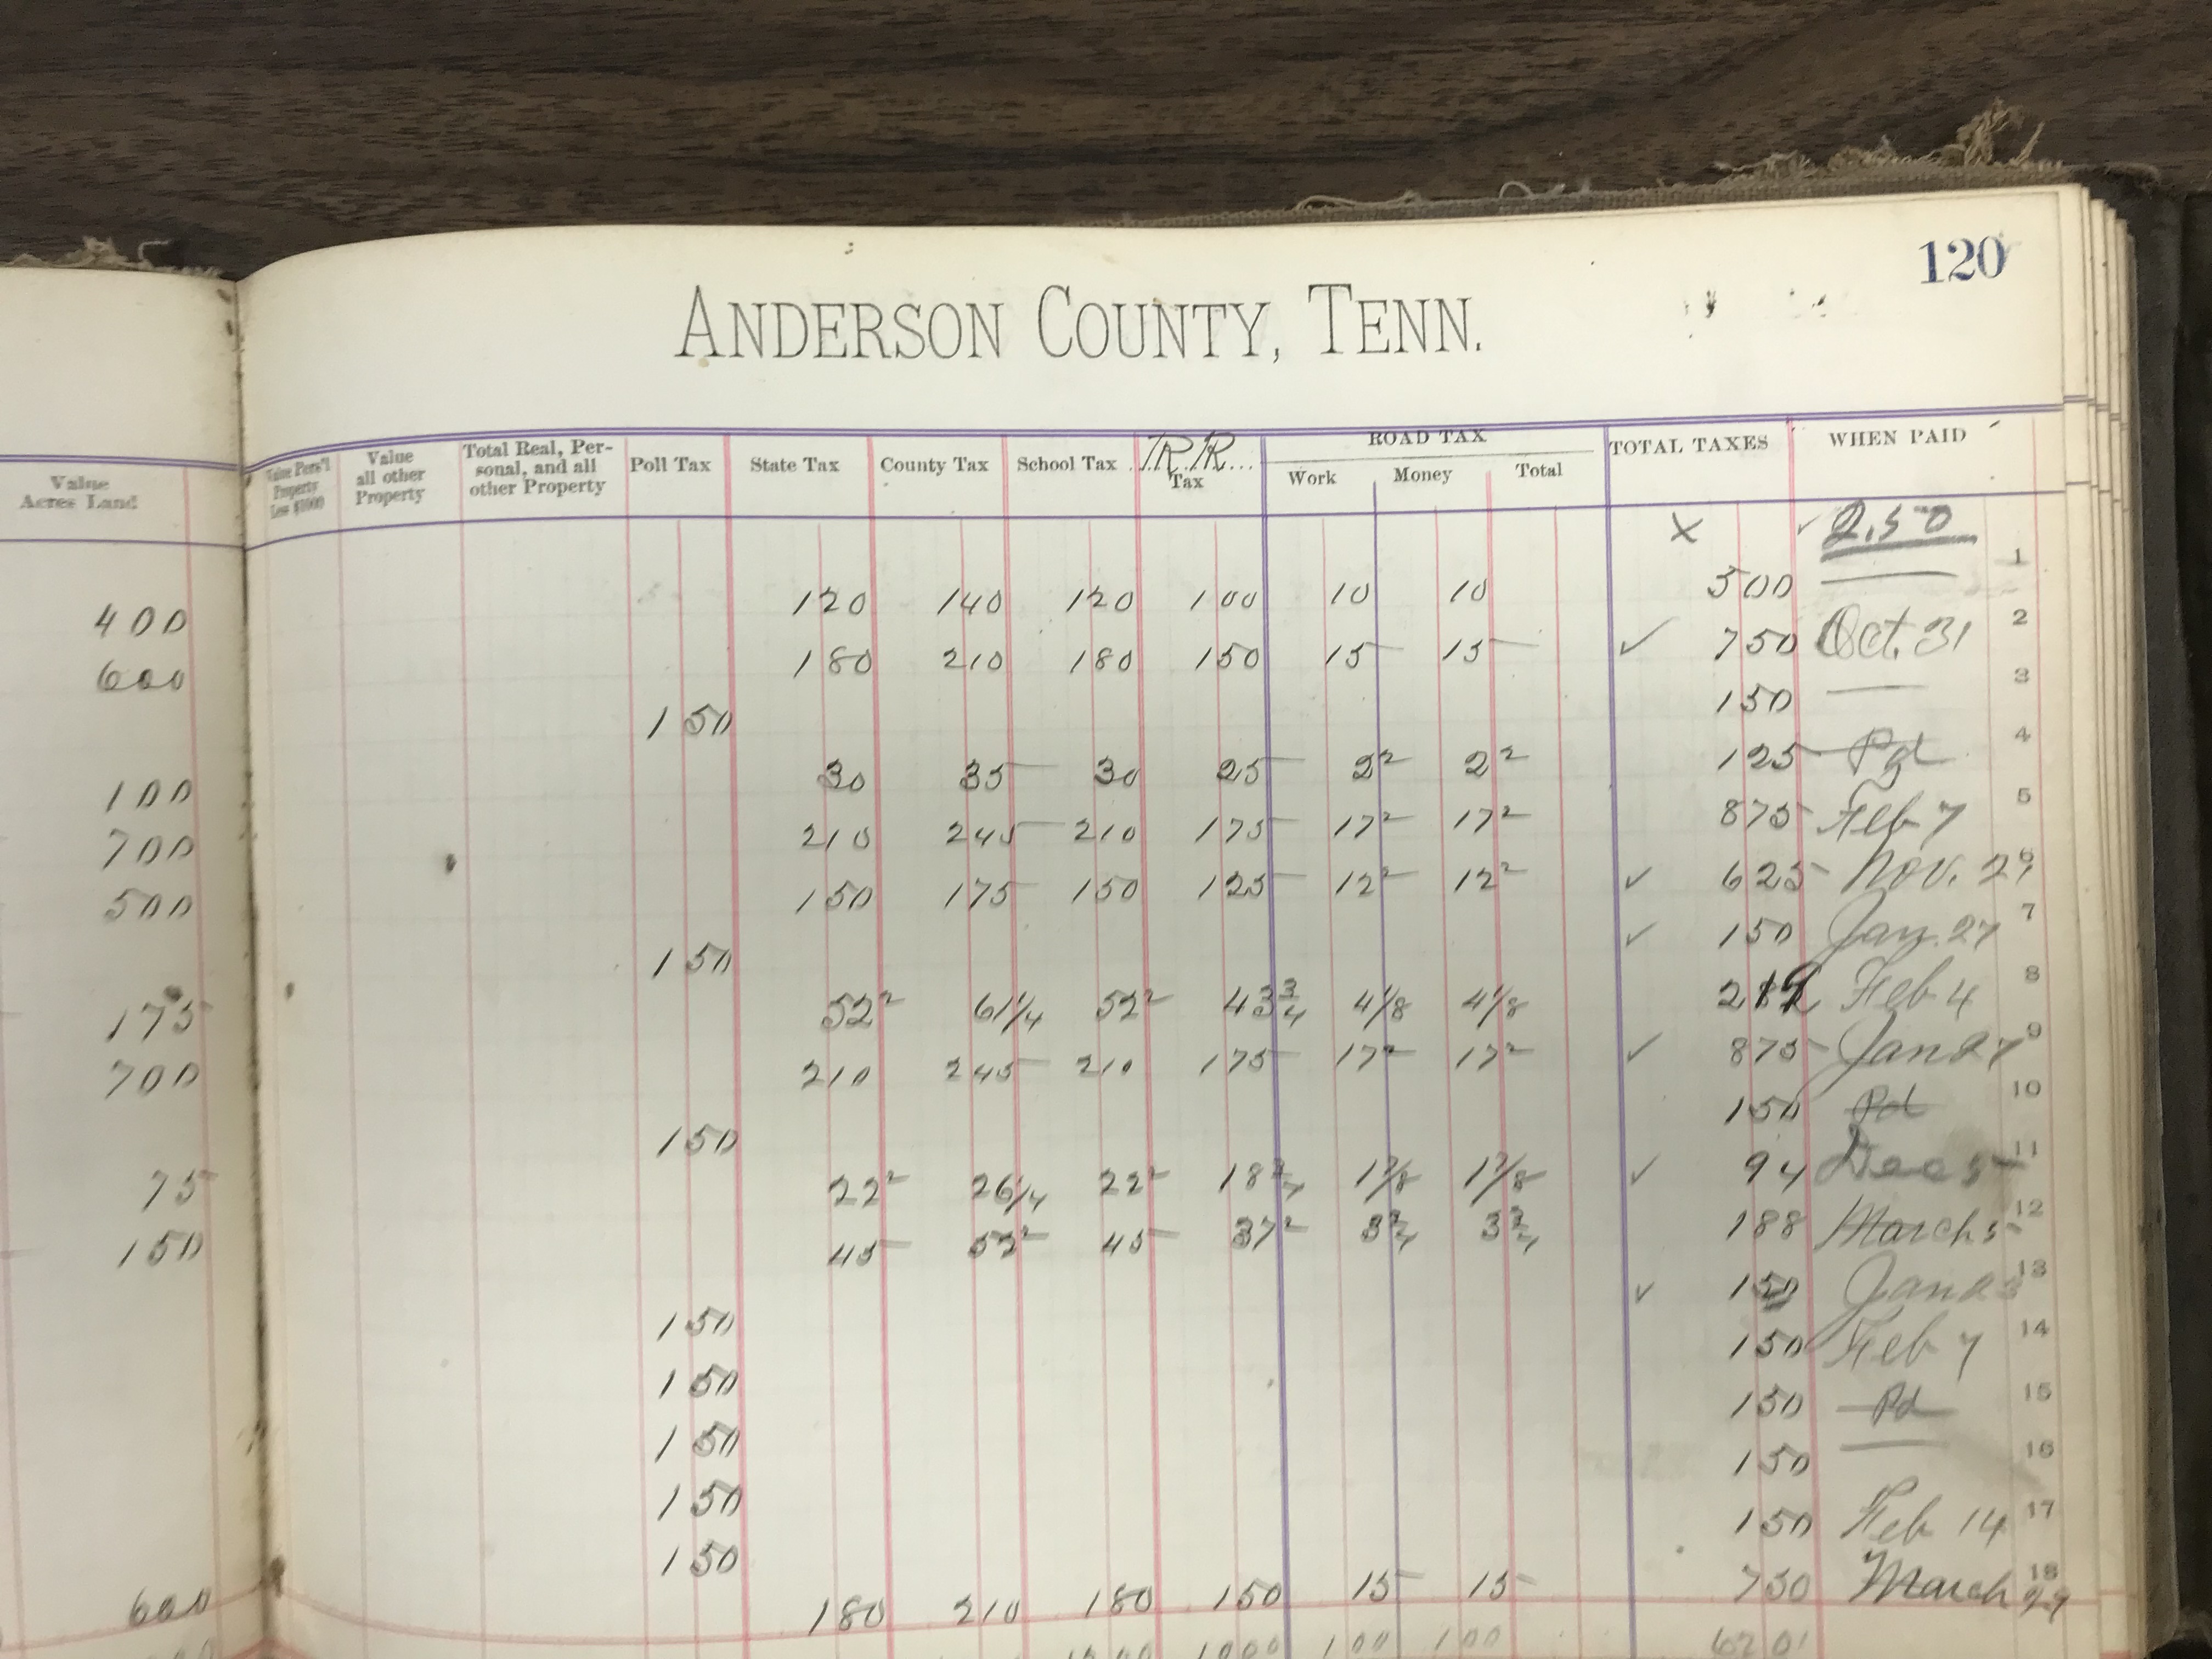 120
ANDERSON COUNTY, TENN.
Value Acres Land
Value Pers'l Property Less $1000
Value all other Property
Total Real, Personal, and all other Property
Poll Tax
State Tax
County Tax
School Tax
R.R. Tax
ROAD TAX
Work
Money
Total
TOTAL TAXES
WHEN PAID
X ✓ 2.50
400 120 140 120 100 10 10 500 — 1
600 180 210 180 150 15 15 ✓ 750 Oct. 31 2
150 150 — 3
100 30 35 30 25 2² 2² 125 Pd 4
700 210 245 210 175 17² 17² 875 Feb 7 5
500 150 175 150 125 12² 12² ✓ 625 Nov. 6
150 ✓ 150 Jan. 27 7
175 52² 61 1/4 52² 43 3/4 4 1/8 4 1/8 219 Feb 4 8
700 210 245 210 175 17² 17² ✓ 875 Jan 27 9
150 150 Pd 10
75 22² 26 1/4 22² 18 3/4 1 7/8 1 7/8 ✓ 94 Dec 5 11
150 45 52² 45 37² 3 3/4 3 3/4 188 March 5 12
150 ✓ 150 Jan 13
150 150 Feb 7 14
150 150 Pd 15
150 150 — 16
150 150 Feb 14 17
600 180 210 180 150 15 15 750 March 29 18
1000 100 100 6201